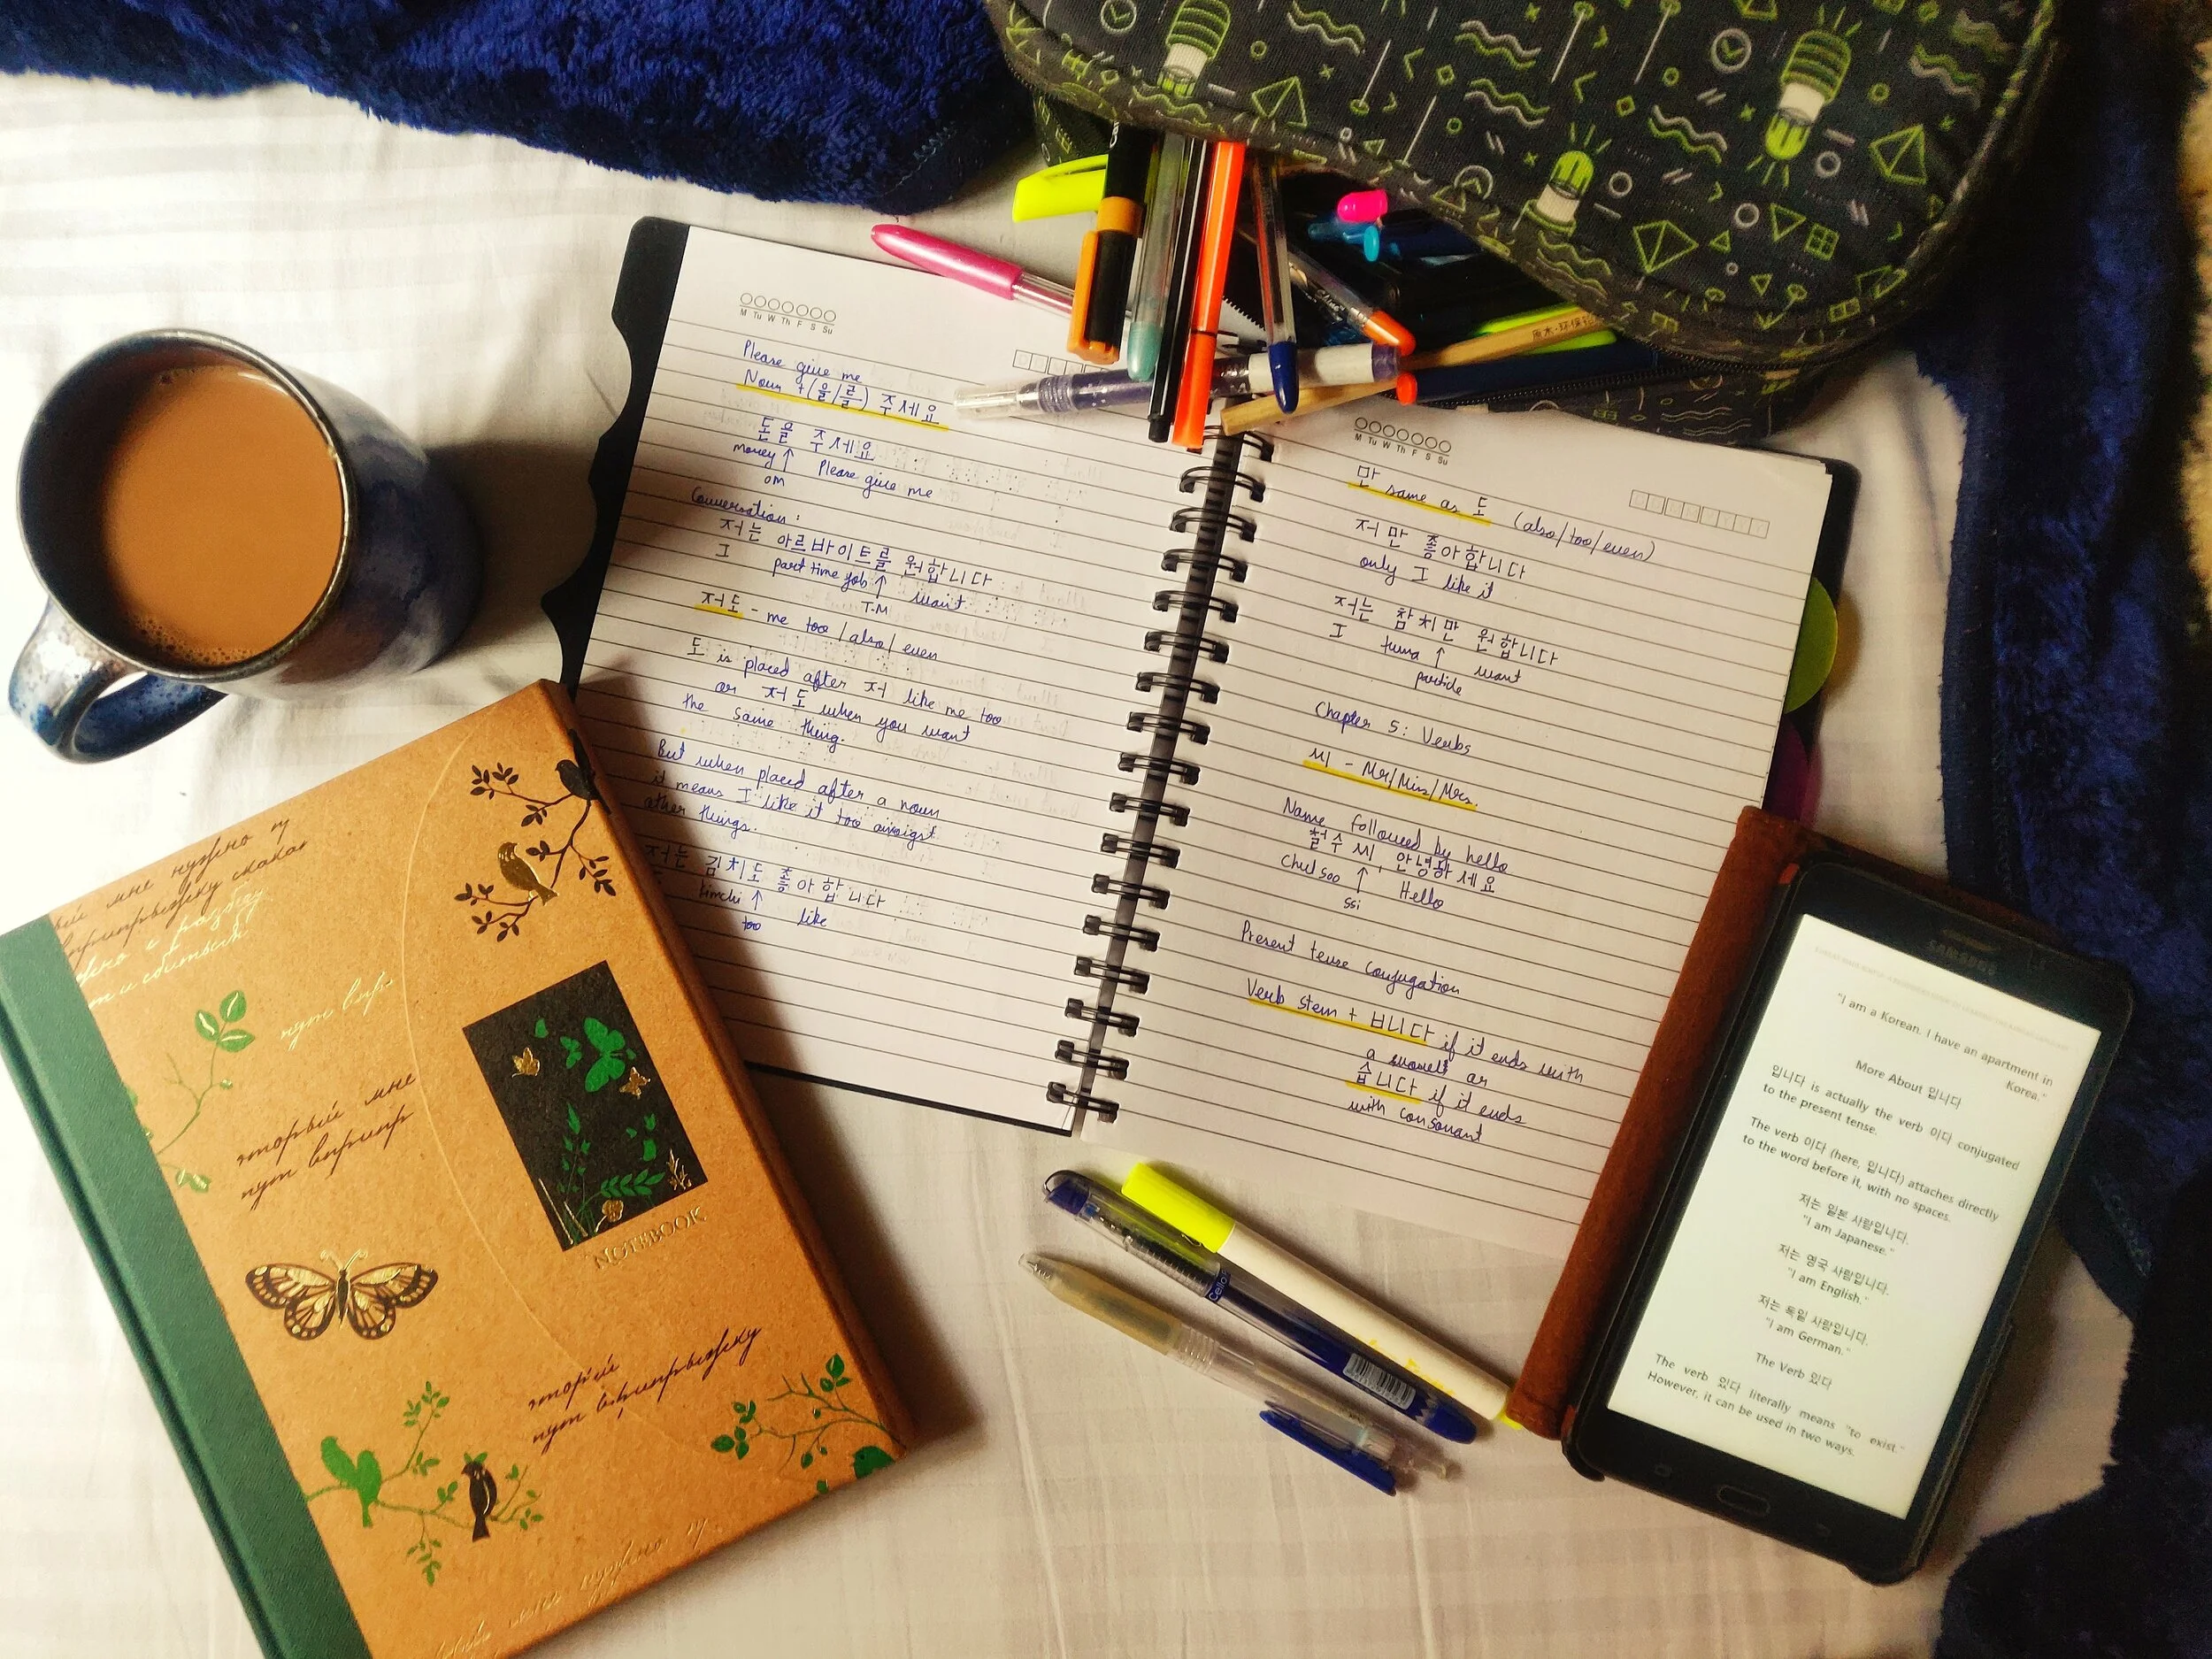 M Tu W Th F S Su
Please give me
Noun + (을/를) 주세요
돈을 주세요
money ↑ Please give me
OM
Conversation :
저는 아르바이트를 원합니다
I part time job ↑ want
T.M
저도 - me too / also / even
도 is placed after 저 like me too
or 저도 when you want
the same thing.
But when placed after a noun
it means I like it too
other things.
저는 김치도 좋아합니다
kimchi ↑ like
too
M Tu W Th F S Su
만 same as 도 (also/too/even)
저만 좋아합니다
only I like it
저는 참치만 원합니다
I tuna ↑ want
particle
Chapter 5: Verbs
씨 - Mr/Miss/Mrs.
Name followed by hello
철수 씨, 안녕하세요
Chul soo ↑ Hello
ssi
Present tense conjugation
Verb stem + ㅂ니다 if it ends with
a vowel or
습니다 if it ends
with consonant
SAMSUNG
"I am a Korean. I have an apartment in
Korea."
More About 입니다
입니다 is actually the verb 이다 conjugated
to the present tense.
The verb 이다 (here, 입니다) attaches directly
to the word before it, with no spaces.
저는 일본 사람입니다.
"I am Japanese."
저는 영국 사람입니다.
"I am English."
저는 독일 사람입니다.
"I am German."
The Verb 있다
The verb 있다 literally means "to exist."
However, it can be used in two ways.
мне нужно
вприпрыжку скака
разбегу
нут впр
торый мне
нут вприпр
NOTEBOOK
торый
нут вприпрыжку
Cello